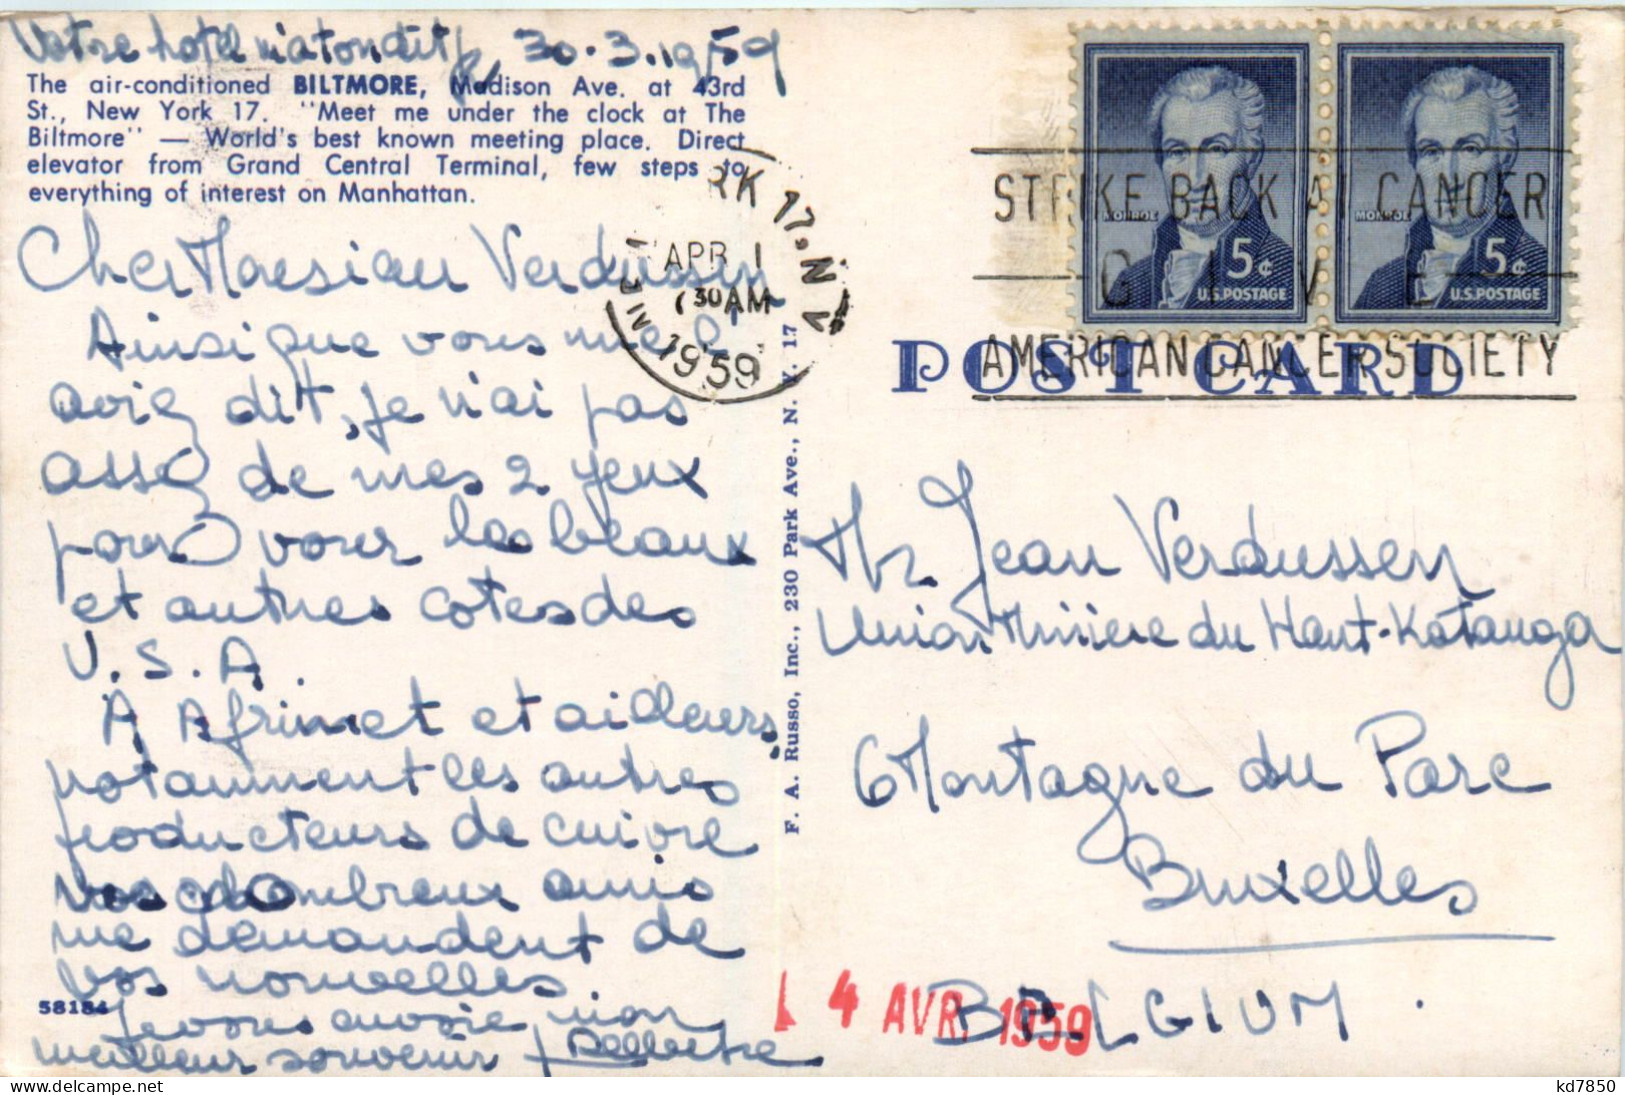 Votre hotel m'a t'on dit 30.3.1959
The air-conditioned BILTMORE, Madison Ave. at 43rd
St., New York 17. "Meet me under the clock at The
Biltmore" — World's best known meeting place. Direct
elevator from Grand Central Terminal, few steps to
everything of interest on Manhattan.
Cher Monsieur Verdussen
Ainsi que vous me l'
aviez dit, je n'ai pas
assez de mes 2 yeux
pour voir les beaux
et autres cotes des
U.S.A.
A Afrimet et ailleurs,
notamment les autres
producteurs de cuivre
vos nombreux amis
me demandent de
vos nouvelles
Je vous envoie mon
meilleur souvenir
58184
F. A. Russo, Inc., 230 Park Ave., N. Y. 17
RK 17, N
APR 1
730 AM
1959
STRIKE BACK AT CANCER
GIVE
AMERICAN CANCER SOCIETY
MONROE 5¢ U.S. POSTAGE
MONROE 5¢ U.S. POSTAGE
POST CARD
Mr Jean Verdussen
Union Minière du Haut-Katanga
6 Montagne du Parc
Bruxelles
BELGIUM.
4 AVR. 1959
kd7850